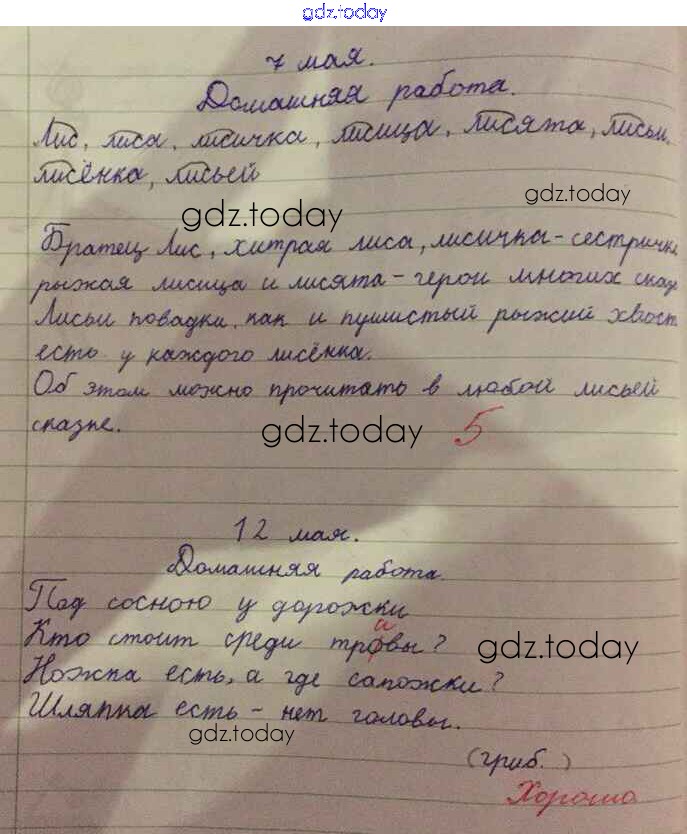 gdz.today
7 мая.
Домашняя работа.
Лис, лиса, лисичка, лисица, лисята, лисьи,
лисёнка, лисьей
gdz.today
gdz.today
Братец Лис, хитрая лиса, лисичка-сестричка
рыжая лисица и лисята - герои многих сказ
Лисьи повадки, как и пушистый рыжий хвост
есть у каждого лисёнка.
Об этом можно прочитать в любой лисьей
сказке.
gdz.today
5
12 мая.
Домашняя работа.
Под сосною у дорожки
а
Кто стоит среди тровы?
gdz.today
Ножка есть, а где сапожки?
Шляпка есть - нет головы.
gdz.today
(гриб.)
Хорошо